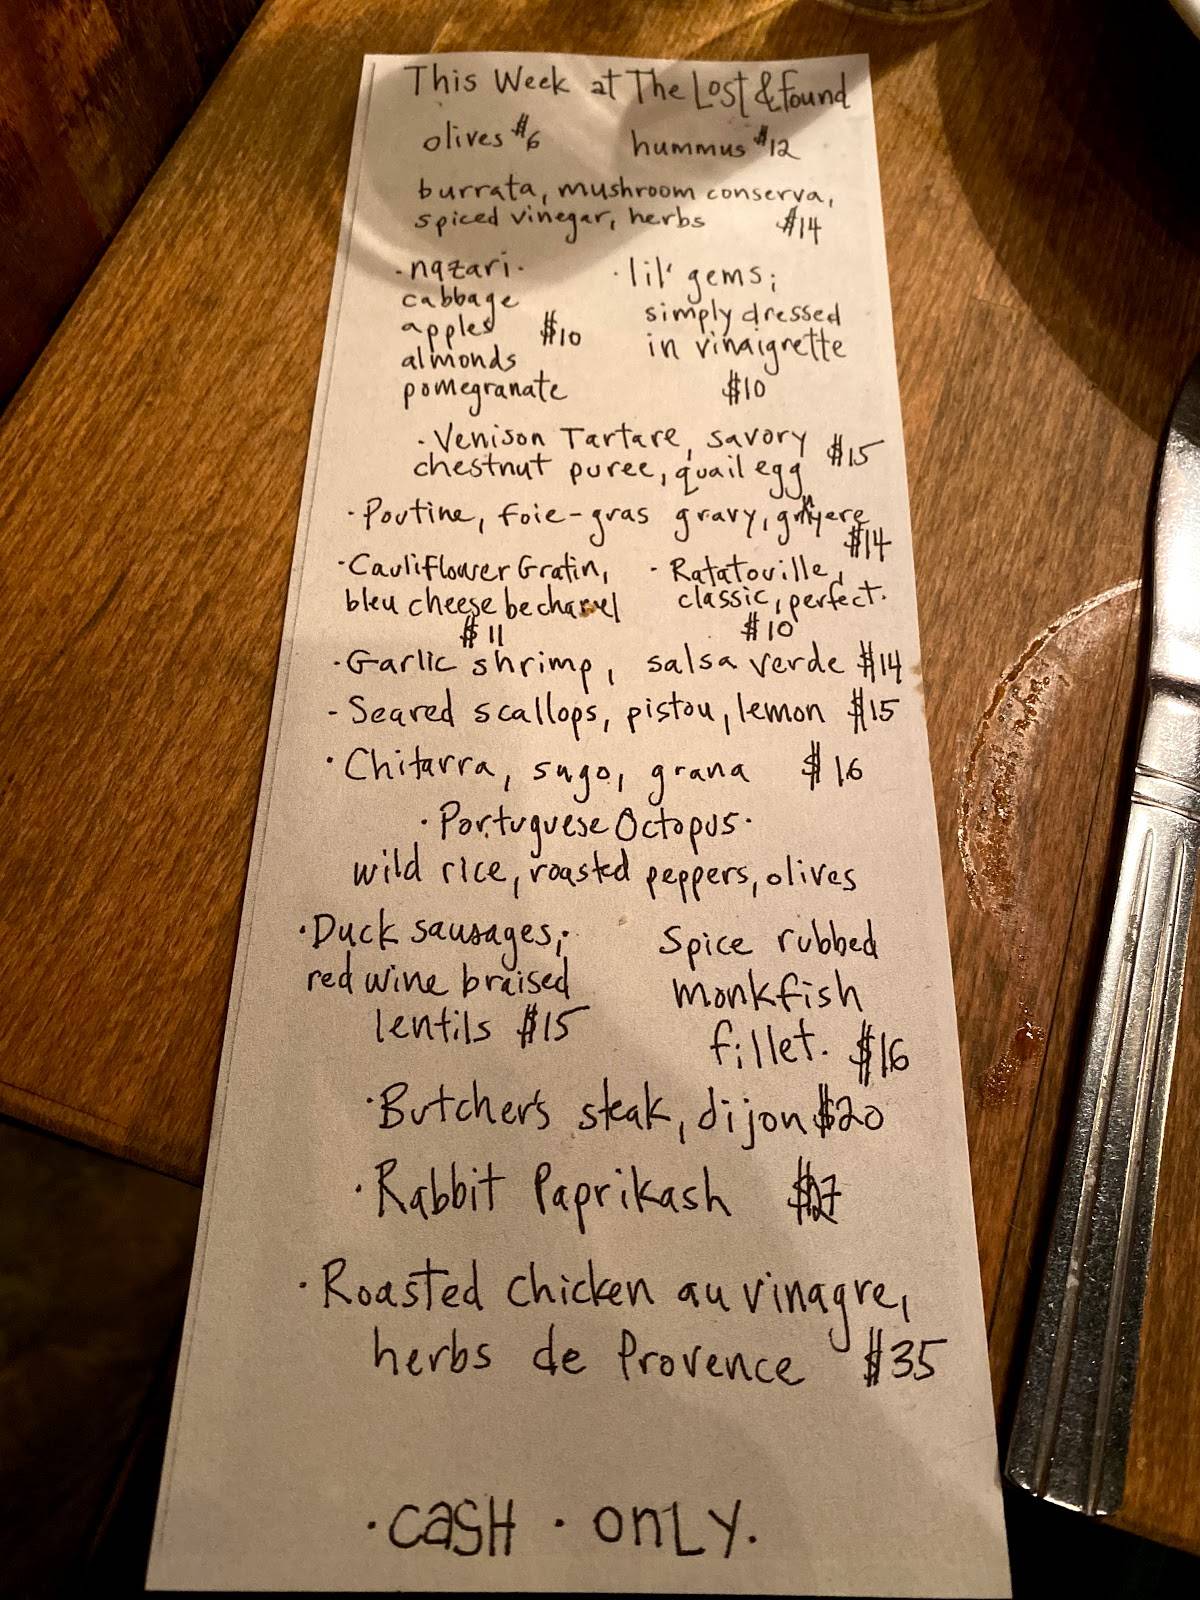 This Week at The Lost & Found
olives $6 hummus $12
burrata, mushroom conserva,
spiced vinegar, herbs $14
· nazari ·
cabbage
apples $10
almonds
pomegranate
· lil' gems;
simply dressed
in vinaigrette
$10
· Venison Tartare, savory
chestnut puree, quail egg $15
· Poutine, foie-gras gravy,
$14
· Cauliflower Gratin,
bleu cheese bechamel
$11
· Ratatouille,
classic, perfect.
$10
· Garlic shrimp, salsa verde $14
- Seared scallops, pistou, lemon $15
· Chitarra, sugo, grana $16
· Portuguese Octopus ·
wild rice, roasted peppers, olives
· Duck sausages,
red wine braised
lentils $15
Spice rubbed
monkfish
fillet. $16
· Butcher's steak, dijon $20
· Rabbit Paprikash
· Roasted chicken au vinagre,
herbs de Provence $35
· CASH · ONLY.